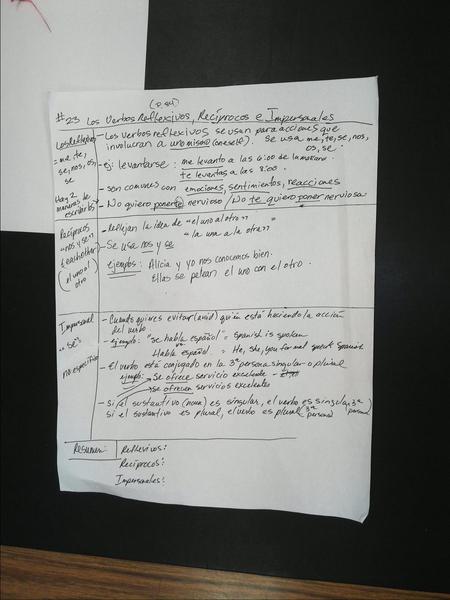 (p. 84)
#23 Los Verbos Reflexivos, Recíprocos e Impersonales
Los Reflexivos
= me, te,
se, nos, os,
se
Hay 2
maneras de
escribirlos
- Los verbos reflexivos se usan para acciones que
involucran a uno mismo (oneself). Se usa me, te, se, nos,
os, se.
- ej: levantarse: me levanto a las 6:00 de la mañana.
te levantas a las 8:00.
- son comunes con emociones, sentimientos, reacciones
- No quiero ponerte nervioso / No te quiero poner nerviosa
Recíprocos
"nos y se"
(each other)
(el uno al
otro)
- Reflejan la idea de "el uno al otro"
"la una a la otra"
- Se usa nos y se
ejemplos: Alicia y yo nos conocemos bien.
Ellas se pelean el uno con el otro.
Impersonal
"se"
no específico
- Cuando quieres evitar (avoid) quién está haciendo la acción
del verbo
- ejemplo: "se habla español" = Spanish is spoken
vs
Habla español = He, she, you formal speaks Spanish
- El verbo está conjugado en la 3ª persona singular o plural
ejemplo: Se ofrece servicio excelente
se ofrecen servicios excelentes
- Si el sustantivo (noun) es singular, el verbo es singular, 3ª persona
si el sustantivo es plural, el verbo es plural (3ª persona)
Resumen:
Reflexivos:
Recíprocos:
Impersonales: